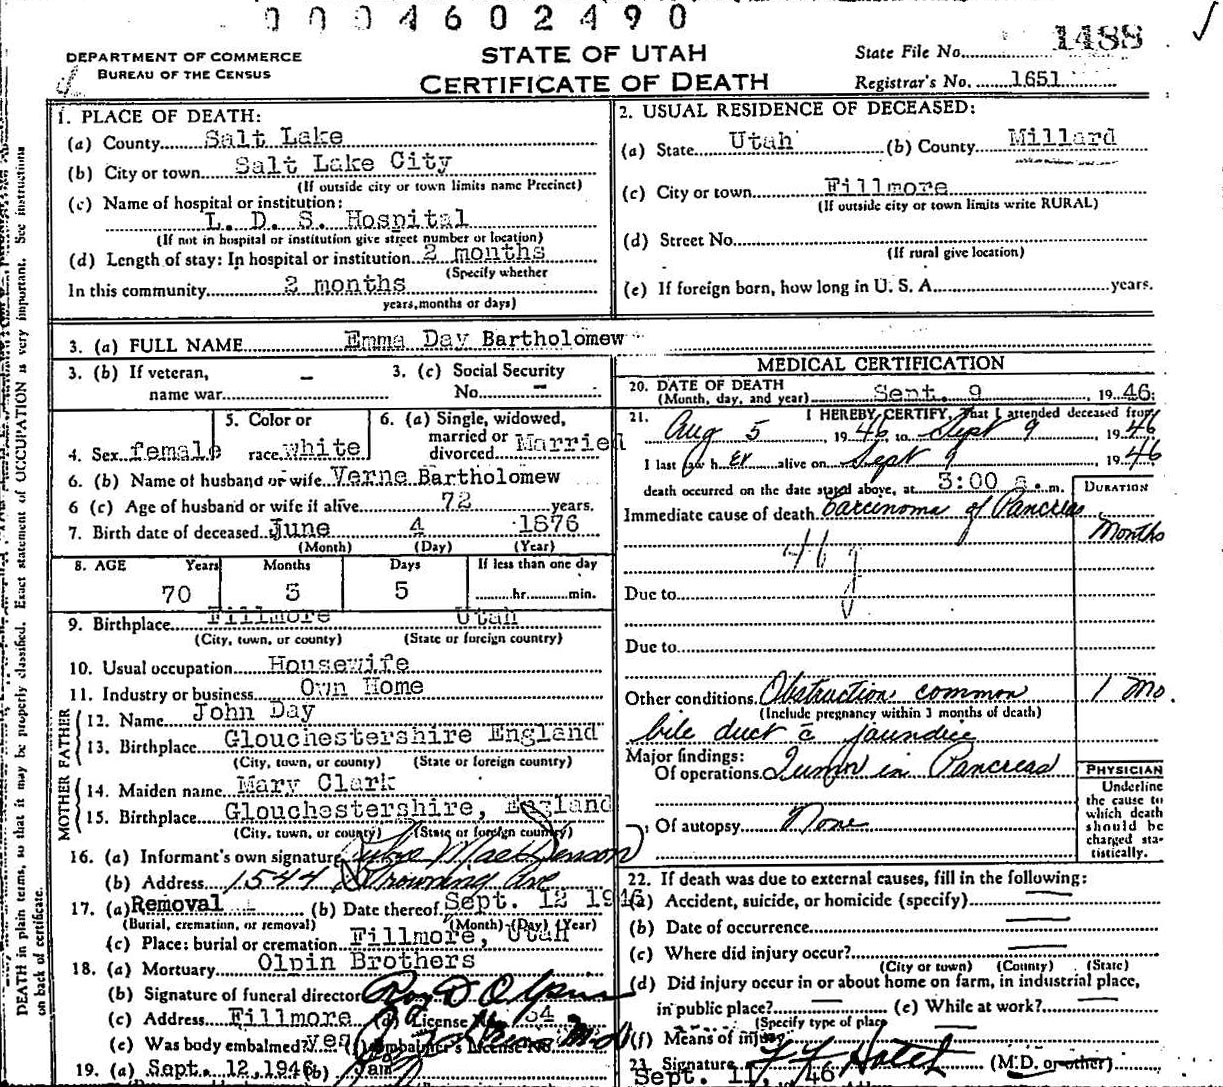 0004602490
DEPARTMENT OF COMMERCE
BUREAU OF THE CENSUS
STATE OF UTAH
CERTIFICATE OF DEATH
State File No. 1488
Registrar's No. 1651
1. PLACE OF DEATH:
(a) County Salt Lake
(b) City or town Salt Lake City
(If outside city or town limits name Precinct)
(c) Name of hospital or institution:
L. D. S. Hospital
(If not in hospital or institution give street number or location)
(d) Length of stay: In hospital or institution 2 months
(Specify whether
In this community 2 months
years, months or days)
2. USUAL RESIDENCE OF DECEASED:
(a) State Utah (b) County Millard
(c) City or town Fillmore
(If outside city or town limits write RURAL)
(d) Street No.
(If rural give location)
(e) If foreign born, how long in U. S. A. years.
3. (a) FULL NAME Emma Day Bartholomew
3. (b) If veteran, name war –
3. (c) Social Security No. –
4. Sex female
5. Color or race white
6. (a) Single, widowed, married or divorced Married
6. (b) Name of husband or wife Verne Bartholomew
6 (c) Age of husband or wife if alive 72 years.
7. Birth date of deceased June 4 1876
(Month) (Day) (Year)
8. AGE Years Months Days If less than one day
70 3 5 hr. min.
9. Birthplace Fillmore Utah
(City, town, or county) (State or foreign country)
10. Usual occupation Housewife
11. Industry or business Own Home
FATHER
12. Name John Day
13. Birthplace Glouchestershire England
(City, town, or county) (State or foreign country)
MOTHER
14. Maiden name Mary Clark
15. Birthplace Glouchestershire, England
(City, town, or county) (State or foreign country)
16. (a) Informant's own signature
(b) Address 1544 Browning Ave
17. (a) Removal (b) Date thereof Sept. 12 1946
(Burial, cremation, or removal) (Month) (Day) (Year)
(c) Place: burial or cremation Fillmore, Utah
18. (a) Mortuary Olpin Brothers
(b) Signature of funeral director Roy D Olpin
(c) Address Fillmore (d) License No. 54
(e) Was body embalmed? yes (f) Embalmer's License No.
19. (a) Sept. 12, 1946 (b)
MEDICAL CERTIFICATION
20. DATE OF DEATH
(Month, day, and year) Sept. 9 1946
21. I HEREBY CERTIFY, That I attended deceased from
Aug 5 1946 to Sept 9 1946
I last saw h er alive on Sept 9, 1946
death occurred on the date stated above, at 3:00 a. m.
DURATION
Immediate cause of death Carcinoma of Pancreas
Months
46 g
Due to
Due to
Other conditions Obstruction common 1 Mo.
(Include pregnancy within 3 months of death)
bile duct c̄ jaundice
Major findings:
Of operations Tumor in Pancreas
Of autopsy None
PHYSICIAN
Underline
the cause to
which death
should be
charged sta-
tistically.
22. If death was due to external causes, fill in the following:
(a) Accident, suicide, or homicide (specify)
(b) Date of occurrence
(c) Where did injury occur?
(City or town) (County) (State)
(d) Did injury occur in or about home on farm, in industrial place,
in public place? (e) While at work?
(Specify type of place
(f) Means of injury
23. Signature (M.D. or other)
Sept. 11, 46
DEATH in plain terms, so that it may be properly classified. Exact statement of OCCUPATION is very important. See instructions
on back of certificate.